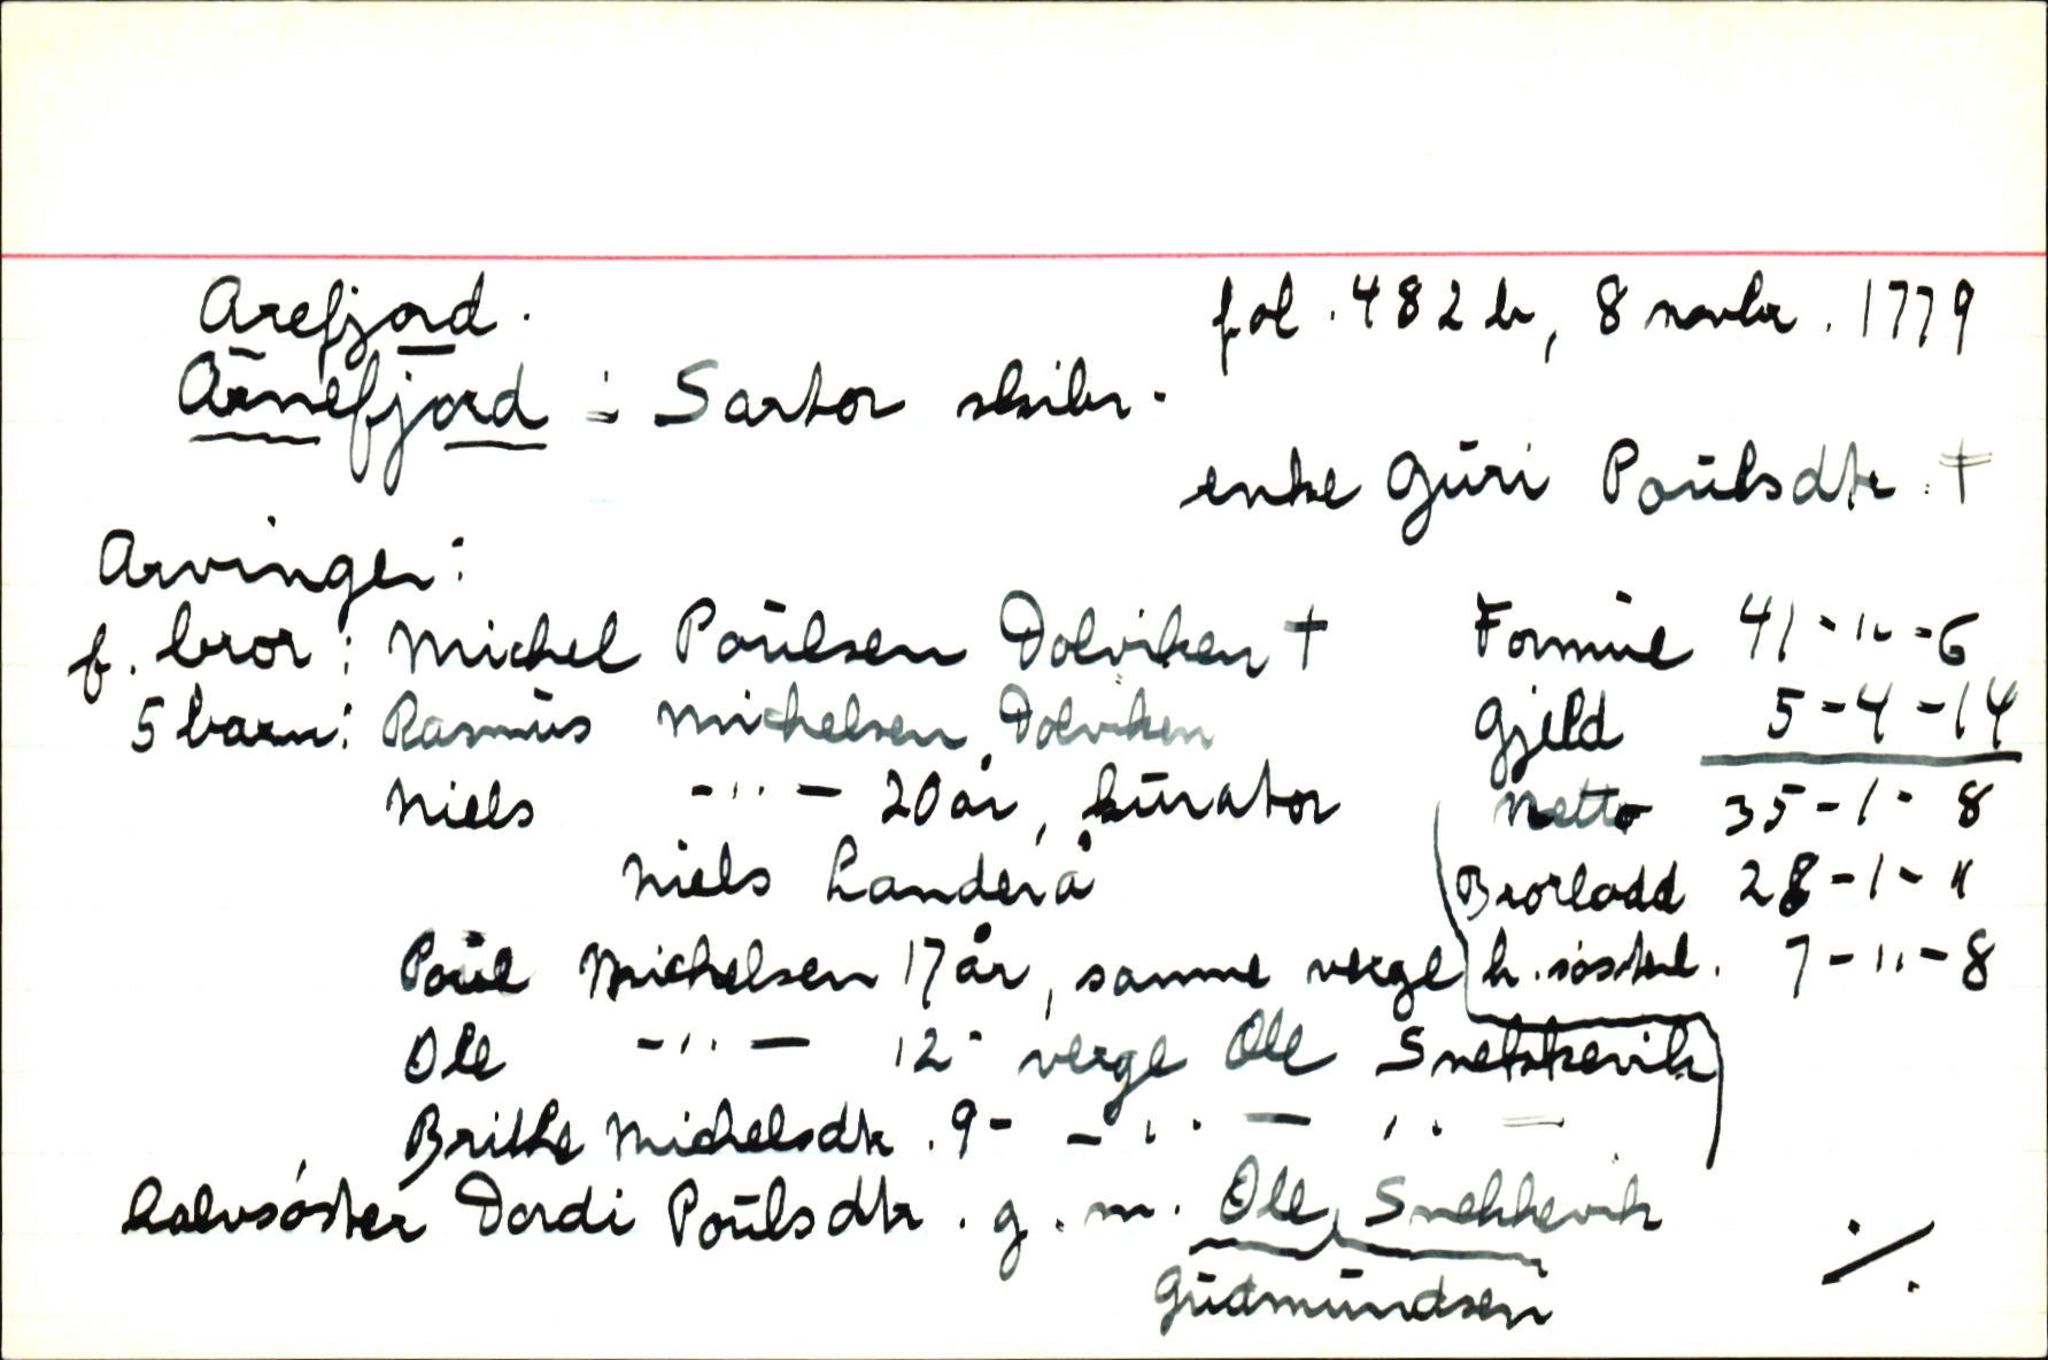 Arefjord. fol. 482 b, 8 novbr. 1779
Arnefjord i Sartor skibr.
enke Guri Poulsdtr. †
Arvinger:
f. bror: Michel Poulsen Dolviken † Formue 41-"-6
5 barn: Rasmus Michelsen Dolviken Gjeld 5-4-14
Niels -"- 20 år, kurator Netto 35-1-8
Niels Landerå Brorlodd 28-1-"
Poul Michelsen 17 år, samme verge h. søsterl. 7-"-8
Ole -"- 12- verge Ole Snekkevik
Brithe Michelsdtr. 9- -"- "-
Halvsøster Dordi Poulsdtr. g. m. Ole Snekkevik ./.
Gudmundsen